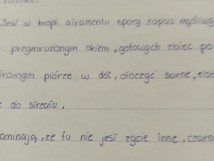 Jest w kropli atramentu spory zapas myśliwych
przymrużonym okiem, gotowych zbiec po
piórze w dół, otoczyć sarnę,
do strzału.
że tu nie jest życie. Inne, czarno